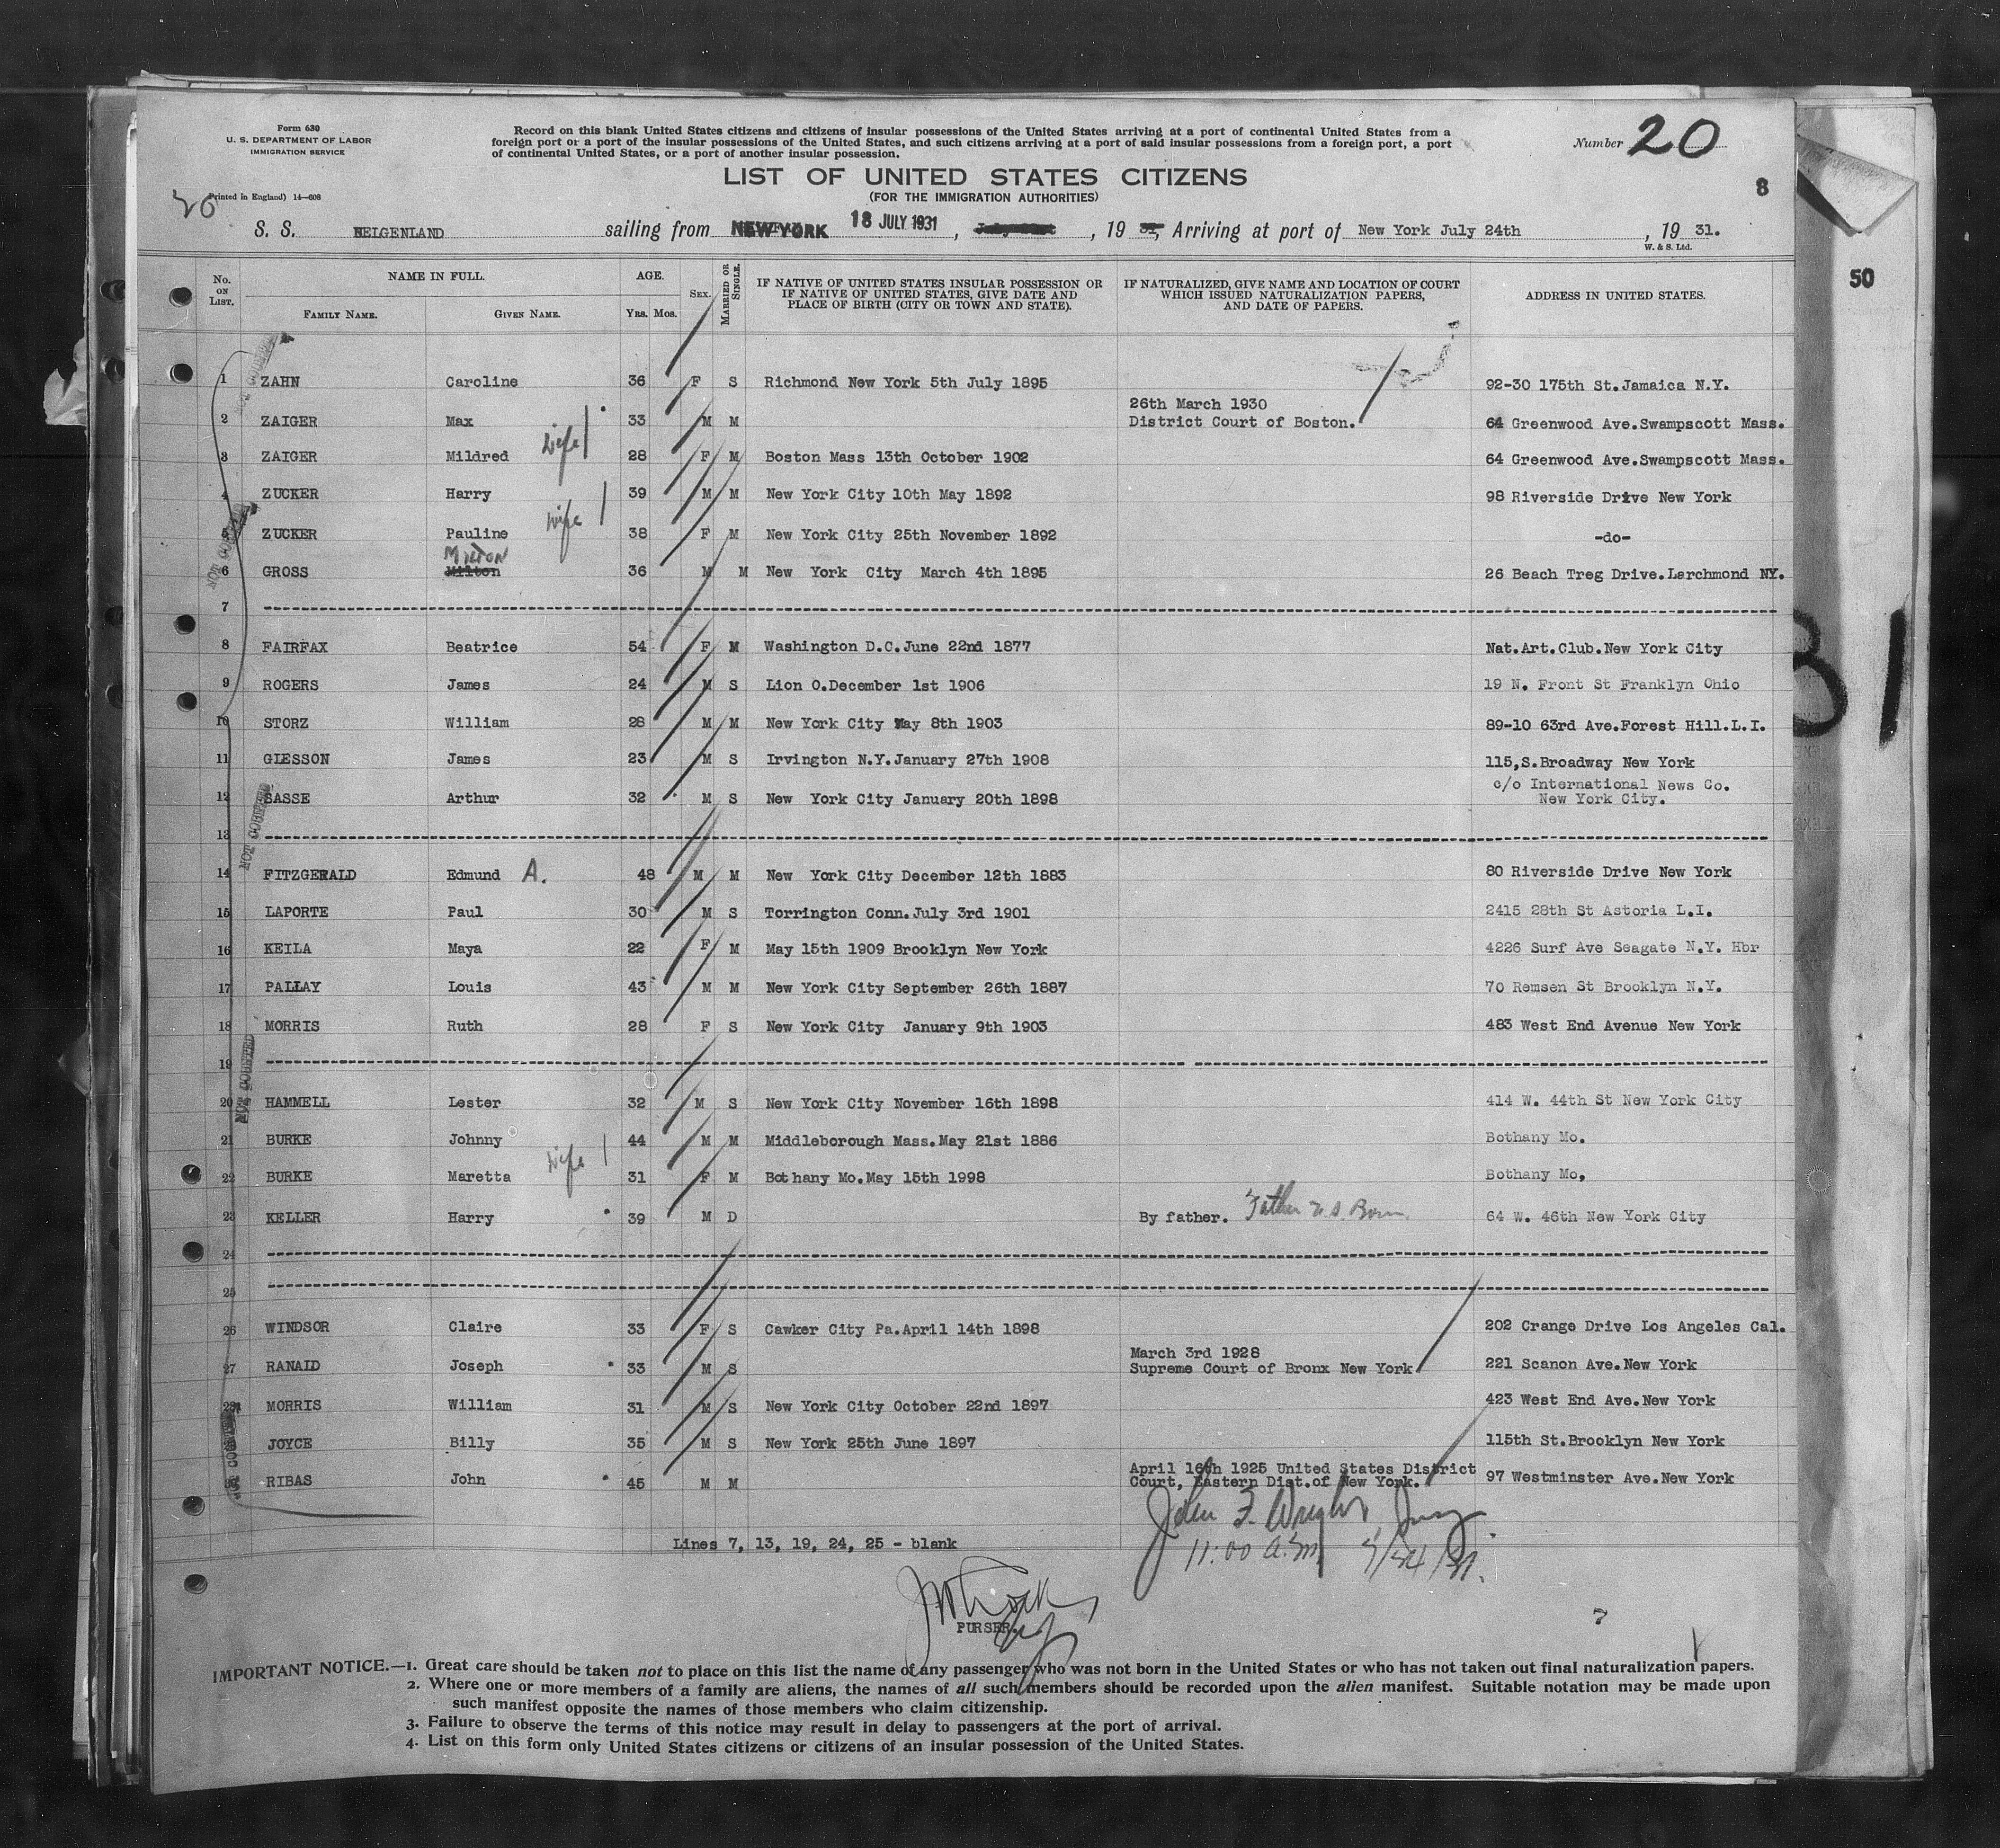 Form 630
U. S. DEPARTMENT OF LABOR
IMMIGRATION SERVICE
Record on this blank United States citizens and citizens of insular possessions of the United States arriving at a port of continental United States from a
foreign port or a port of the insular possessions of the United States, and such citizens arriving at a port of said insular possessions from a foreign port, a port
of continental United States, or a port of another insular possession.
Number 20
LIST OF UNITED STATES CITIZENS
(FOR THE IMMIGRATION AUTHORITIES)
8
20
Printed in England) 14—608
S. S. BELGENLAND sailing from NEW YORK 18 JULY 1931, 19 31, Arriving at port of New York July 24th, 19 31.
W. & S. Ltd.
No. ON LIST. NAME IN FULL. FAMILY NAME. GIVEN NAME. AGE. YRS. MOS. SEX. MARRIED OR SINGLE. IF NATIVE OF UNITED STATES INSULAR POSSESSION OR IF NATIVE OF UNITED STATES, GIVE DATE AND PLACE OF BIRTH (CITY OR TOWN AND STATE). IF NATURALIZED, GIVE NAME AND LOCATION OF COURT WHICH ISSUED NATURALIZATION PAPERS, AND DATE OF PAPERS. ADDRESS IN UNITED STATES.
50
1 ZAHN Caroline 36 F S Richmond New York 5th July 1895 92-30 175th St.Jamaica N.Y.
26th March 1930
2 ZAIGER Max 33 M M District Court of Boston. 64 Greenwood Ave.Swampscott Mass.
3 ZAIGER Mildred wife 28 F M Boston Mass 13th October 1902 64 Greenwood Ave.Swampscott Mass.
4 ZUCKER Harry 39 M M New York City 10th May 1892 98 Riverside Drive New York
5 ZUCKER Pauline wife 38 F M New York City 25th November 1892 -do-
MILTON
6 GROSS Milton 36 M M New York City March 4th 1895 26 Beach Treg Drive.Larchmond NY.
7
8 FAIRFAX Beatrice 54 F M Washington D.C.June 22nd 1877 Nat.Art.Club.New York City
9 ROGERS James 24 M S Lion O.December 1st 1906 19 N. Front St Franklyn Ohio
10 STORZ William 28 M M New York City May 8th 1903 89-10 63rd Ave.Forest Hill.L.I.
11 GIESSON James 23 M S Irvington N.Y.January 27th 1908 115,S.Broadway New York
12 SASSE Arthur 32 M S New York City January 20th 1898 c/o International News Co.
New York City.
13
14 FITZGERALD Edmund A. 48 M M New York City December 12th 1883 80 Riverside Drive New York
15 LAPORTE Paul 30 M S Torrington Conn.July 3rd 1901 2415 28th St Astoria L.I.
16 KEILA Maya 22 F M May 15th 1909 Brooklyn New York 4226 Surf Ave Seagate N.Y. Hbr
17 PALLAY Louis 43 M M New York City September 26th 1887 70 Remsen St Brooklyn N.Y.
18 MORRIS Ruth 28 F S New York City January 9th 1903 483 West End Avenue New York
19
20 HAMMELL Lester 32 M S New York City November 16th 1898 414 W. 44th St New York City
21 BURKE Johnny 44 M M Middleborough Mass.May 21st 1886 Bothany Mo.
22 BURKE Maretta wife 31 F M Bothany Mo.May 15th 1998 Bothany Mo,
23 KELLER Harry 39 M D By father. Father U.S. Born. 64 W. 46th New York City
24
25
26 WINDSOR Claire 33 F S Cawker City Pa.April 14th 1898 202 Crange Drive Los Angeles Cal.
March 3rd 1928
27 RANAID Joseph 33 M S Supreme Court of Bronx New York 221 Scanon Ave.New York
28 MORRIS William 31 M S New York City October 22nd 1897 423 West End Ave.New York
29 JOYCE Billy 35 M S New York 25th June 1897 115th St.Brooklyn New York
April 16th 1925 United States District
30 RIBAS John 45 M M Court, Eastern Dist.of New York. 97 Westminster Ave.New York
NOT COUNTED
NOT COUNTED
NOT COUNTED
NOT COUNTED
John F. Wright, Insp
11:00 a.m. 7/24/31.
Lines 7, 13, 19, 24, 25 - blank
PURSER.
IMPORTANT NOTICE.—1. Great care should be taken not to place on this list the name of any passenger who was not born in the United States or who has not taken out final naturalization papers.
2. Where one or more members of a family are aliens, the names of all such members should be recorded upon the alien manifest. Suitable notation may be made upon
such manifest opposite the names of those members who claim citizenship.
3. Failure to observe the terms of this notice may result in delay to passengers at the port of arrival.
4. List on this form only United States citizens or citizens of an insular possession of the United States.